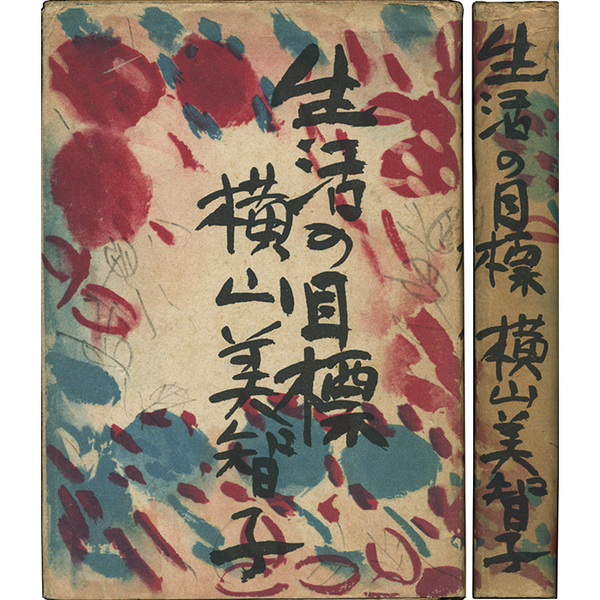 生活の目標
横山美智子
生活の目標 横山美智子